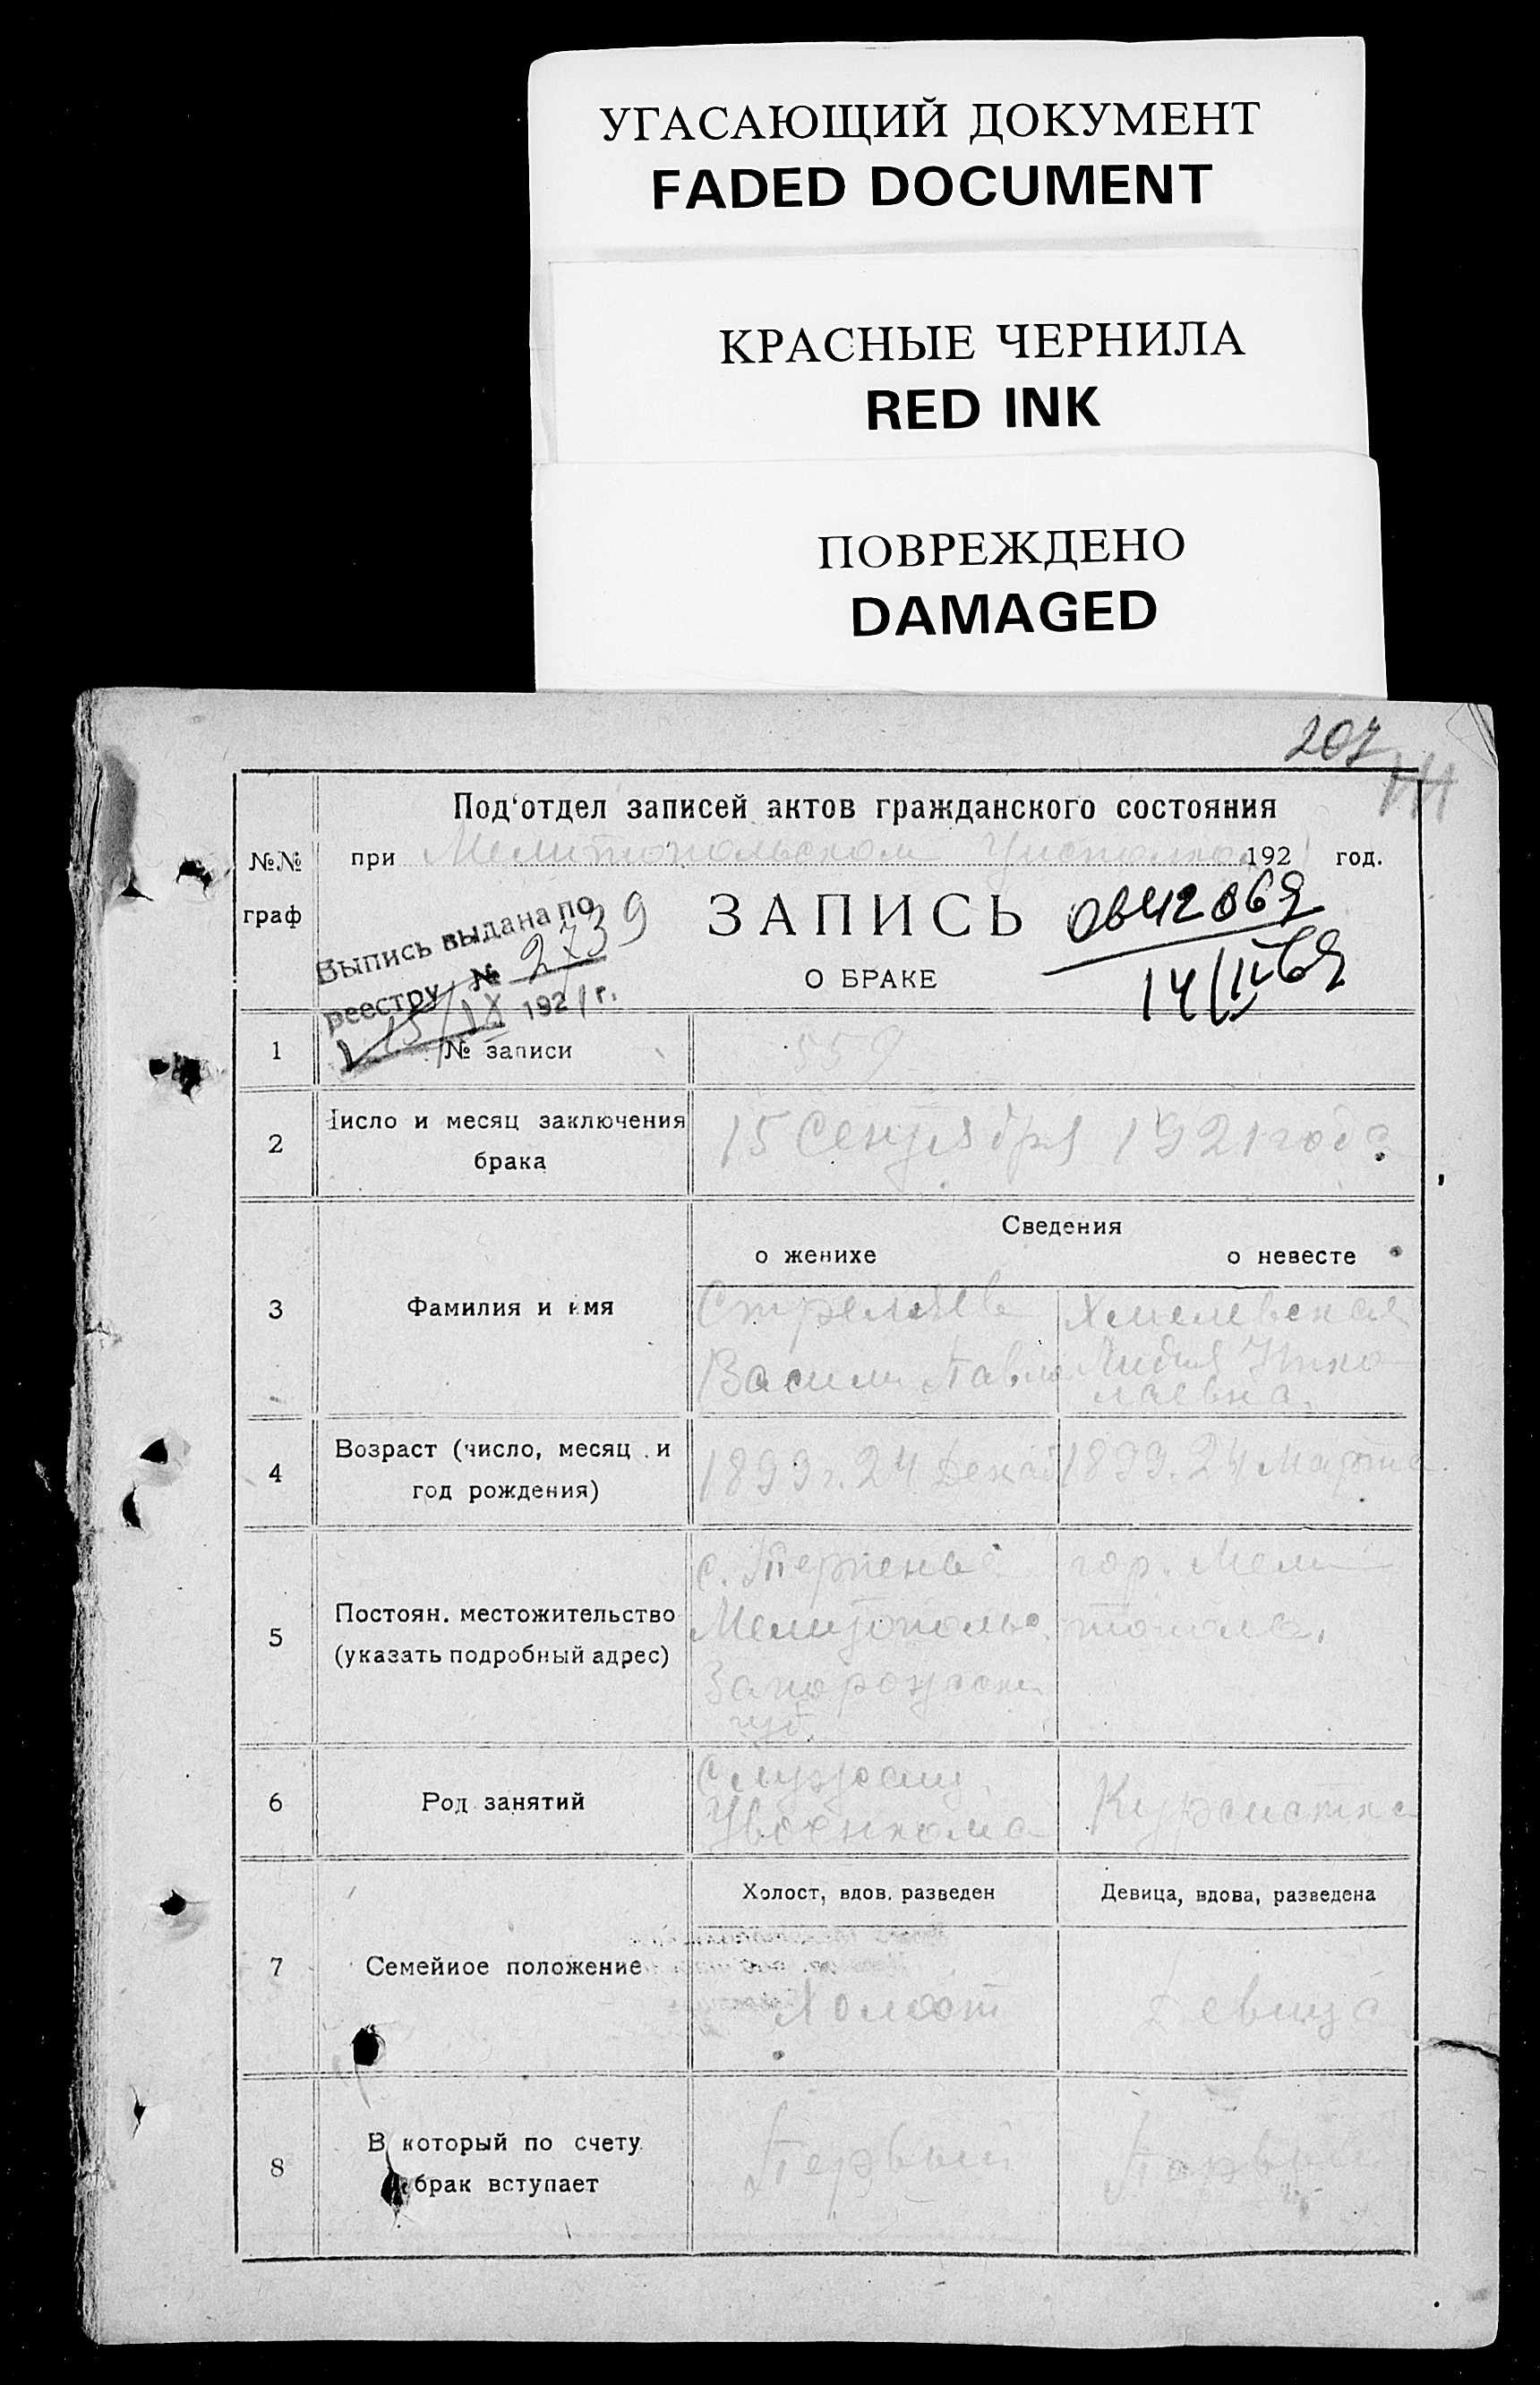 УГАСАЮЩИЙ ДОКУМЕНТ
FADED DOCUMENT
КРАСНЫЕ ЧЕРНИЛА
RED INK
ПОВРЕЖДЕНО
DAMAGED
207
Под'отдел записей актов гражданского состояния
№№ граф
при Мелитопольском 192 год.
Выпись выдана по
реестру № 2739
15/IX 1921 г.
ЗАПИСЬ
О БРАКЕ
1 № записи 559
2 Число и месяц заключения
брака
15 Сентября 1921 года
Сведения
о женихе о невесте
3 Фамилия и имя
Хмелевская
Лидия Нико
лаевна.
4 Возраст (число, месяц и
год рождения)
1893 г. 24 Декаб 1893. 24 Марта.
5 Постоян. местожительство
(указать подробный адрес)
с. Терпенье гор. Мели
Мелитопольс. тополь.
Запорожской
губ.
6 Род занятий
Служащ. Курсистка
7 Семейное положение
Холост, вдов. разведен Девица, вдова, разведена
Холост Девица
8 В который по счету
брак вступает
Первый Первый